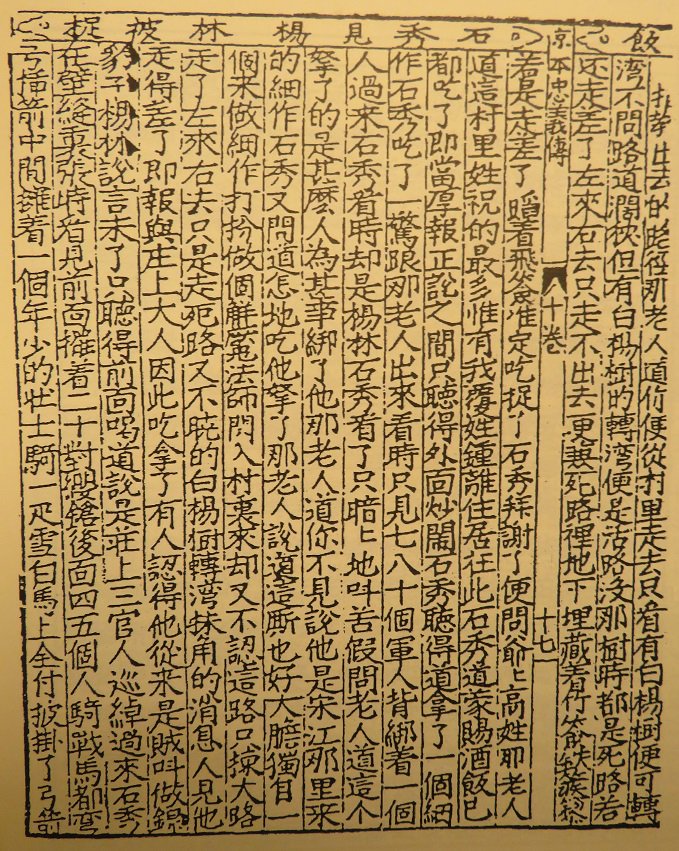 飲
指出去的路徑那老人道你便從村里走去只看有白楊樹便可轉
湾不問路道濶狹但有白楊樹的轉湾便是活路没那樹時都是死路若
还走差了左來右去只走不出去更兼死路裡地下埋藏着竹簽鉄蒺
京本忠義傳 十卷 十七
石秀見楊林被捉
若是走差了蹅着飛簽准定吃捉了石秀拜謝了便問爺〻高姓那老人
道這村里姓祝的最多惟有我覆姓鍾離住居在此石秀道蒙賜酒飯已
都吃了即當厚報正說之間只聽得外面炒閙石秀聽得道拿了一個細
作石秀吃了一驚跟那老人出來看時只見七八十個軍人背綁着一個
人過來石秀看時却是楊林石秀看了只暗〻地叫苦假問老人道這個
拏了的是甚麽人為甚事綁了他那老人道你不見說他是宋江那里來
的細作石秀又問道怎地吃他拏了那老人說道這厮也好大膽獨自一
個來做細作打扮做個觧魘法師閃入村裏來却又不認這路只揀大路
走了左來右去只是走死路又不暁的白楊樹轉湾抹角的消息人見他
走得差了即報與庄上大人因此吃拿了有人認得他從來是賊叫做錦
豹子楊林說言未了只聽得前面喝道說是莊上三官人巡綽過來石秀
在壁縫裏張時看見前面擺着二十對纓鎗後面四五個人騎戰馬都弯
弓插箭中間着一個年少的壮士騎一疋雪白馬上全付披掛了弓箭